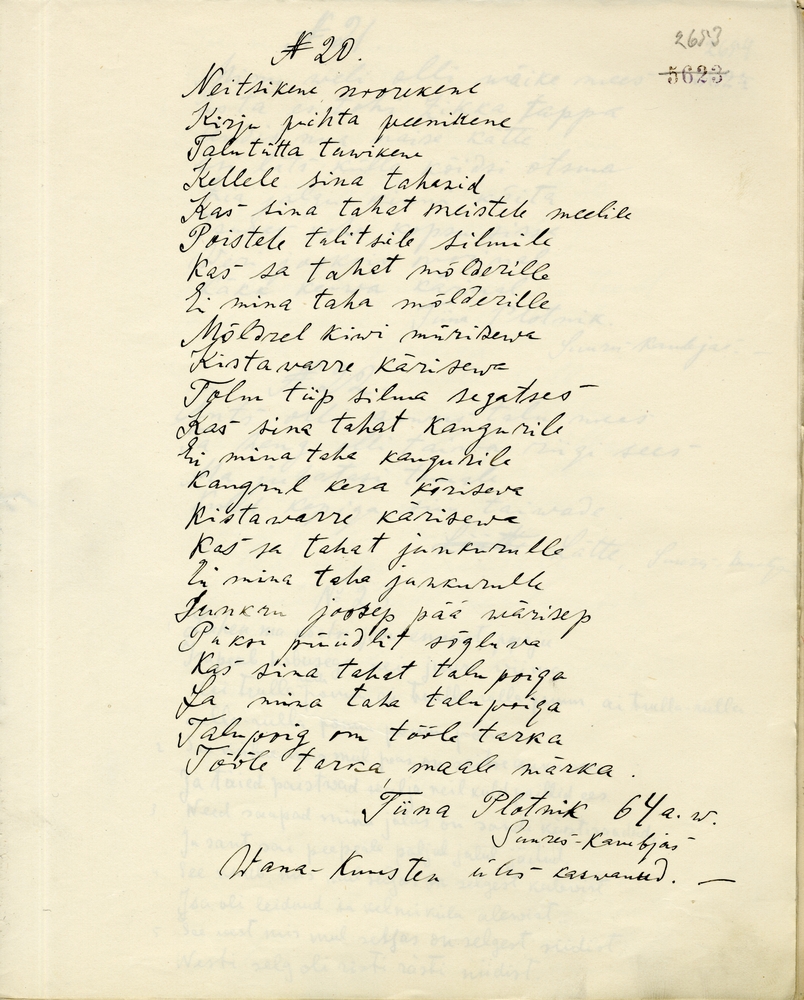 № 20.
2653
5623
Neitsikene noorekene
Kirju pihta peenikene
Talutütta tuwikene
Kellele sina tahasid
Kas sina tahat meistele meelile
Poistele talitsile silmile
Kas sa tahat mölderille
Ei mina taha mölderille
Möldrel kiwi mürisewa
Kistawarre kärisewa
Tolm tüp silma segatses
Kas sina tahat kangurile
Ei mina taha kangurile
Kangrul kera köriseva
Kistawarre kärisewa
Kas sa tahat junkurulle
Ei mina taha junkurulle
Junkru joosep pää wärisep
Püksi püüdlit sögluva
Kas sina tahat talupoiga
Ja mina taha talupoiga
Talupoig om tööle tarka
Tööle tarka, maale märka.
Tiina Plotnik 64 a. w.
Suures-Kambjas
Wana-Kuusten üles kaswanud. —